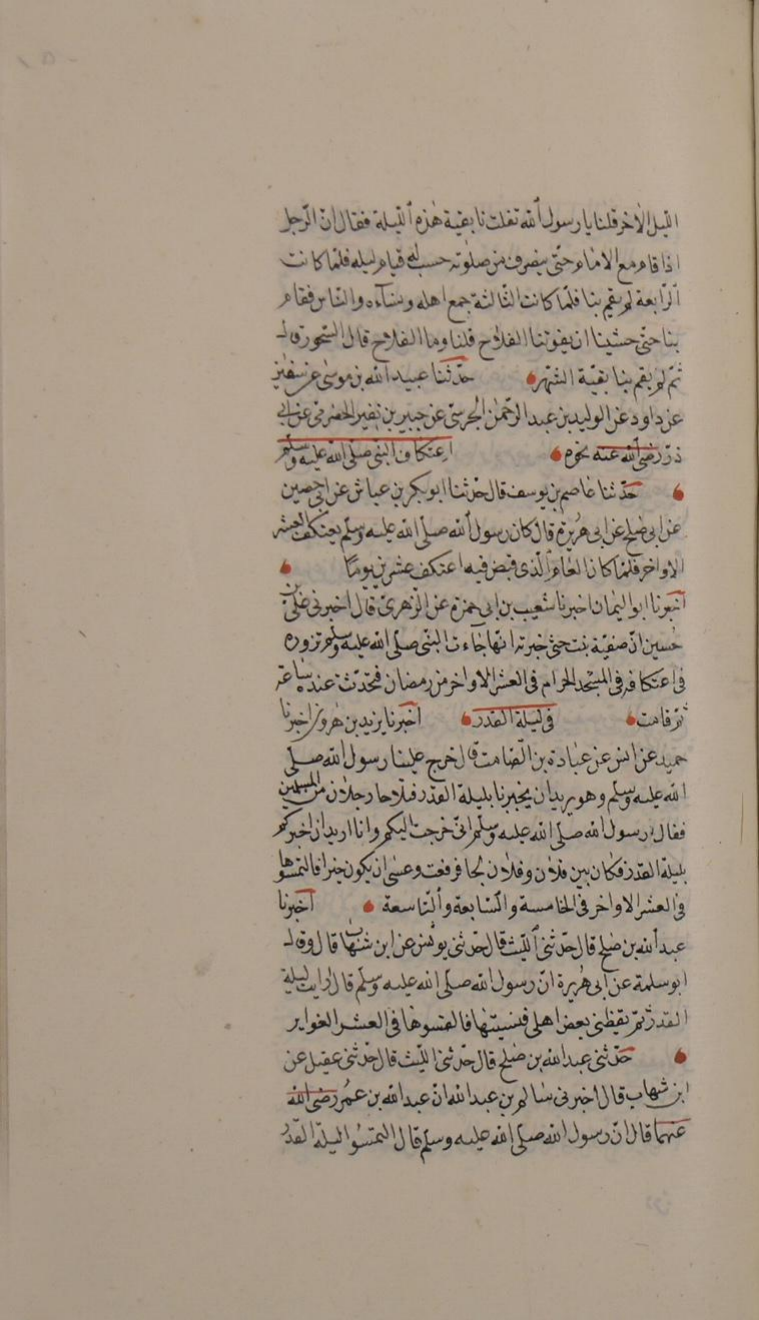 الليل الاخر قلنا يا رسول الله نفلتنا بقية هذه الليلة فقال ان الرجل
اذا قام مع الامام حتى ينصرف من صلوته حسب له قيام ليله فلما كانت
الرابعة لم يقم بنا فلما كانت الثالثة جمع اهله ونساءه والناس فقام
بنا حتى خشينا ان يفوتنا الفلاح قلنا وما الفلاح قال السحور قال
ثم لم يقم بنا بقية الشهر حدثنا عبيد الله بن موسى عن سفين
عن داود عن الوليد بن عبد الرحمن الجرشي عن جبير بن نفير الحضرمي عن ابي
ذر رضي الله عنه نحوه اعتكاف النبي صلى الله عليه وسلم
حدثنا عاصم بن يوسف قال حدثنا ابو بكر بن عياش عن ابي حصين
عن ابي صلح عن ابي هريرة قال كان رسول الله صلى الله عليه وسلم يعتكف العشر
الاواخر فلما كان العام الذي قبض فيه اعتكف عشرين يوما
اخبرنا ابو اليمان اخبرنا شعيب بن ابي حمزة عن الزهري قال اخبرني علي بن
حسين ان صفية بنت حيي خبرته انها جاءت النبي صلى الله عليه وسلم تزوره
في اعتكافه في المسجد الحرام في العشر الاواخر من رمضان فتحدثت عنده ساعة
ثم قامت في ليلة القدر اخبرنا يزيد بن هرون اخبرنا
حميد عن انس عن عبادة بن الصامت قال خرج علينا رسول الله صلى
الله عليه وسلم وهو يريد ان يخبرنا بليلة القدر فتلاحا رجلان من المسلمين
فقال رسول الله صلى الله عليه وسلم اني خرجت اليكم وانا اريد ان اخبركم
بليلة القدر فكان بين فلان وفلان لحا فرفعت وعسى ان يكون خيرا فالتمسوها
في العشر الاواخر في الخامسة والسابعة والتاسعة اخبرنا
عبد الله بن صلح قال حدثني الليث قال حدثني يونس عن ابن شهاب قال وقال
ابو سلمة عن ابي هريرة ان رسول الله صلى الله عليه وسلم قال رايت ليلة
القدر ثم يقظني بعض اهلي فنسيتها فالتمسوها في العشر الغوابر
حدثني عبد الله بن صلح قال حدثني الليث قال حدثني عقيل عن
ابن شهاب قال اخبرني سالم بن عبد الله ان عبد الله بن عمر رضي الله
عنهما قال ان رسول الله صلى الله عليه وسلم قال التمسوا ليلة القدر